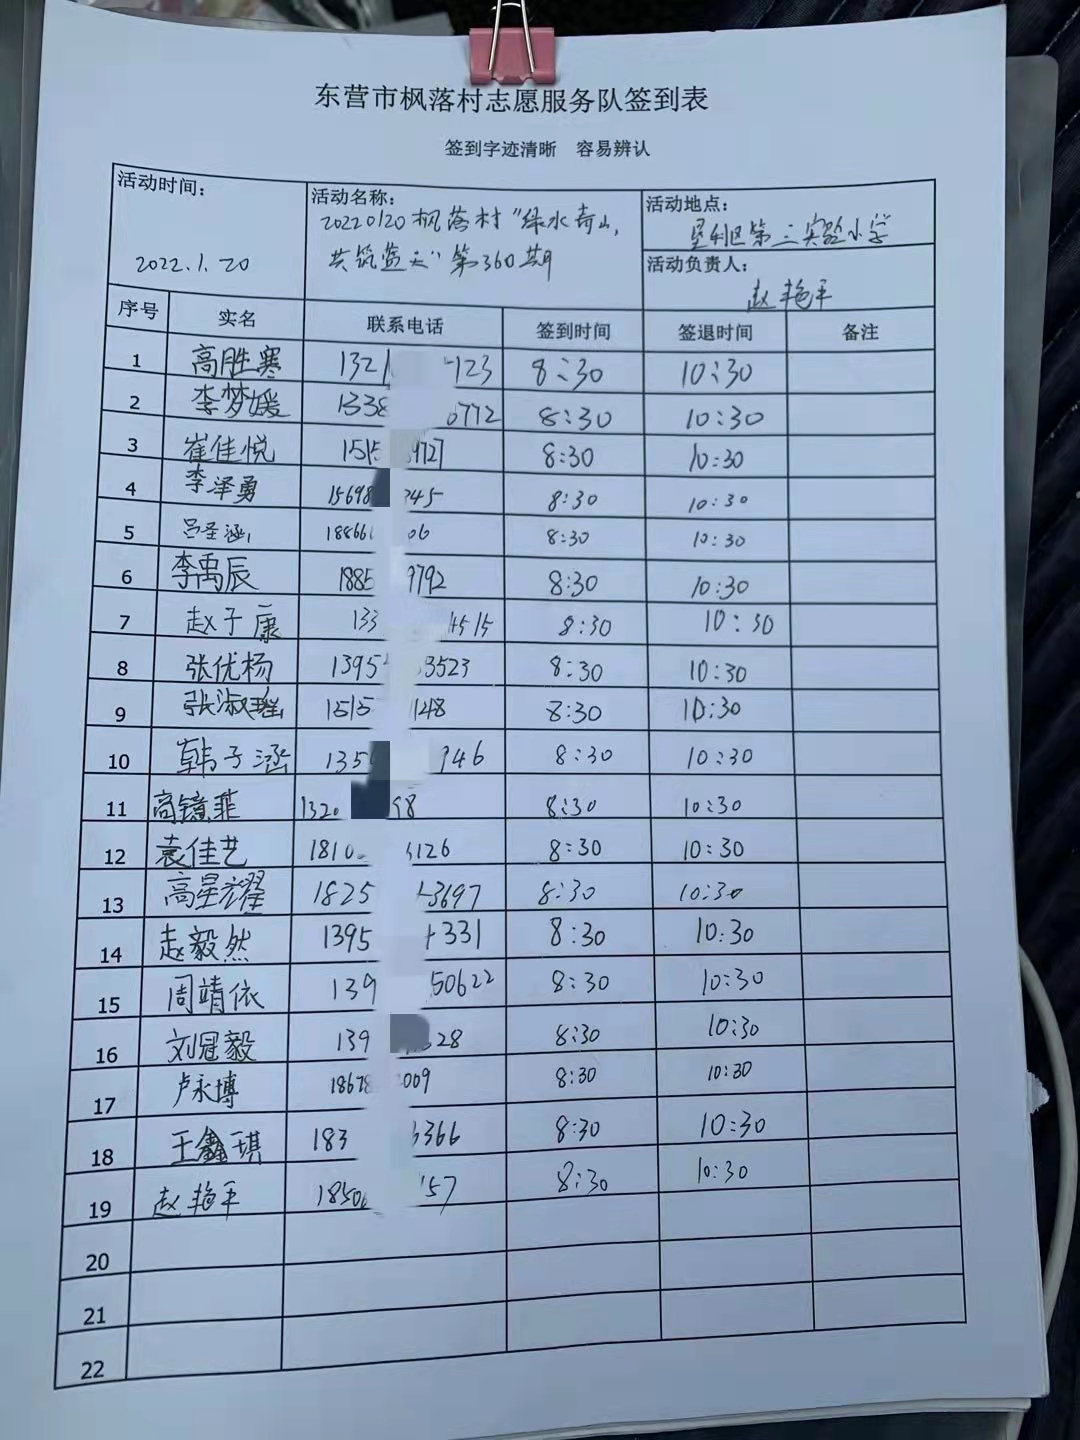 东营市枫落村志愿服务队签到表
签到字迹清晰 容易辨认
活动时间：
2022.1.20
活动名称：
20220120枫落村“绿水青山，
共筑蓝天”第360期
活动地点：
垦利区第三实验小学
活动负责人：
赵艳平
序号 实名 联系电话 签到时间 签退时间 备注
1 高胜寒 1321 123 8:30 10:30
2 李梦媛 1338 0772 8:30 10:30
3 崔佳悦 1515 9727 8:30 10:30
4 李泽勇 15698 345 8:30 10:30
5 吕圣涵 18866 06 8:30 10:30
6 李禹辰 1885 3792 8:30 10:30
7 赵子康 133 4515 8:30 10:30
8 张优杨 1395 3523 8:30 10:30
9 张淑瑶 1515 1248 8:30 10:30
10 韩子涵 135 946 8:30 10:30
11 高镱菲 1320 98 8:30 10:30
12 袁佳艺 1810 126 8:30 10:30
13 高星耀 1825 3697 8:30 10:30
14 赵毅然 1395 331 8:30 10:30
15 周靖依 139 50622 8:30 10:30
16 刘冠毅 139 328 8:30 10:30
17 卢永博 18678 009 8:30 10:30
18 王鑫琪 183 3366 8:30 10:30
19 赵艳平 1850 57 8:30 10:30
20
21
22